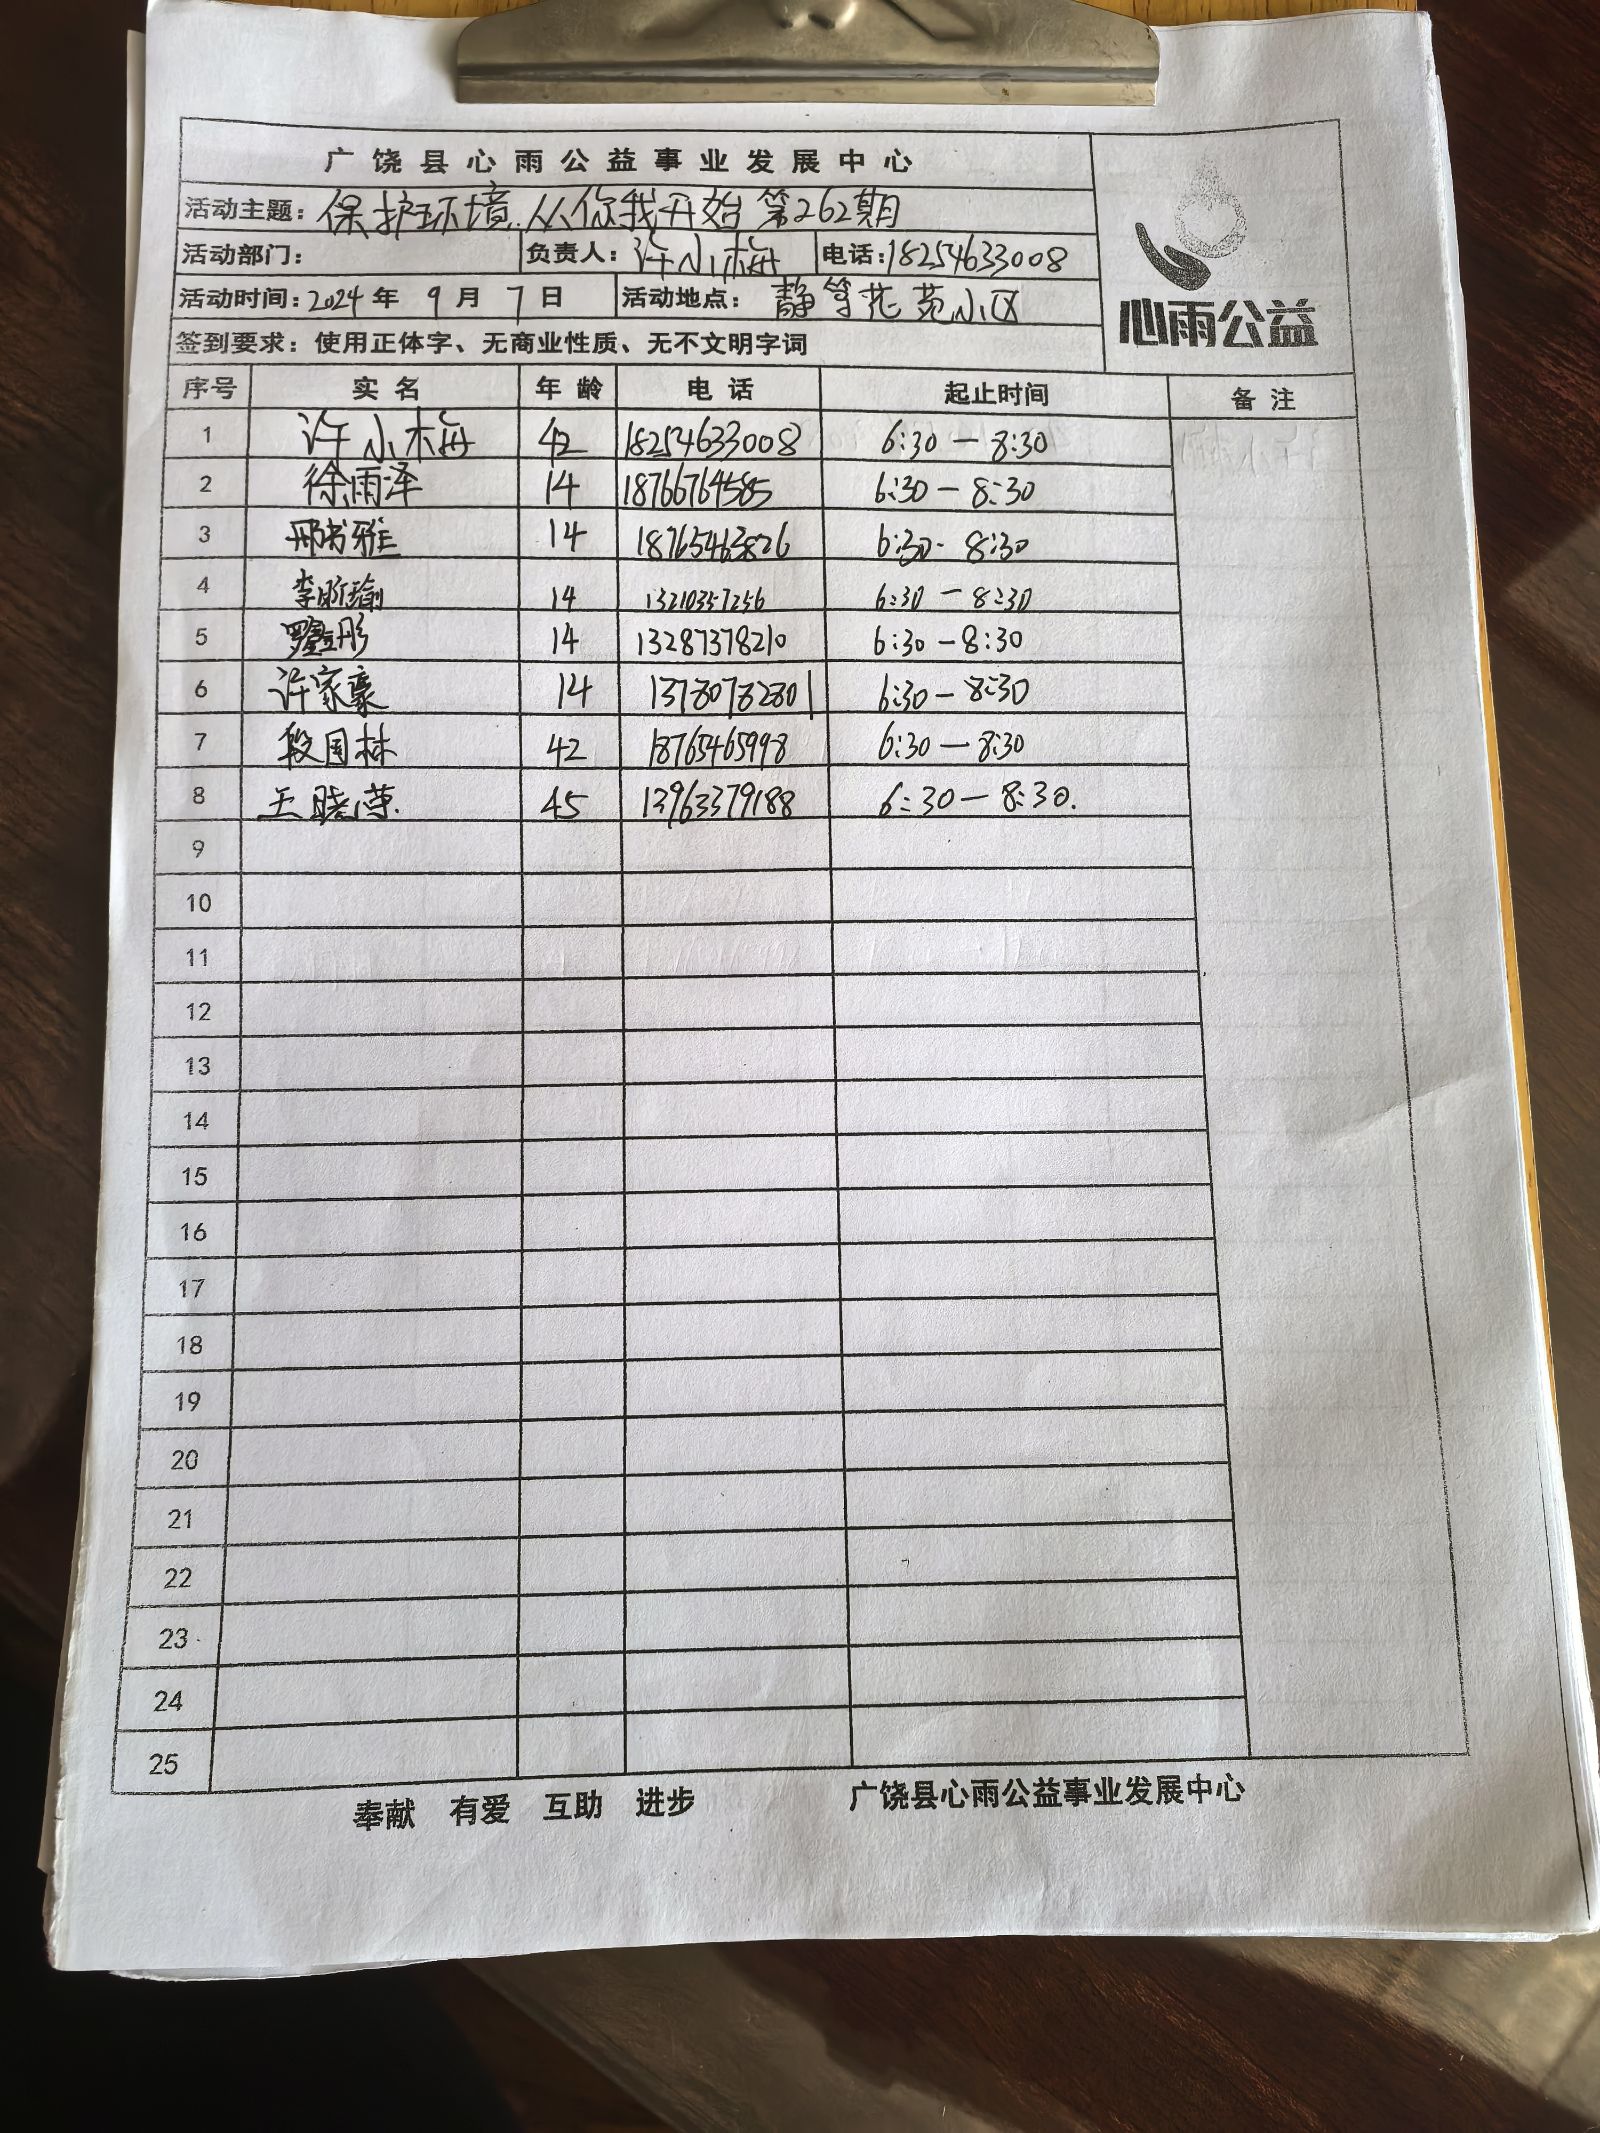 广饶县心雨公益事业发展中心
活动主题：保护环境.从你我开始 第262期
活动部门： 负责人：许小梅 电话：18254633008
活动时间：2024年9月7日 活动地点：静等花苑小区
心雨公益
签到要求：使用正体字、无商业性质、无不文明字词
序号 实名 年龄 电话 起止时间 备注
1 许小梅 42 18254633008 6:30－8:30
2 徐雨泽 14 18766764585 6:30－8:30
3 邢书雅 14 18765463826 6:30－8:30
4 李昕瑜 14 13210357256 6:30－8:30
5 14 13287378210 6:30－8:30
6 许家豪 14 13780782801 6:30－8:30
7 段国林 42 18765465998 6:30－8:30
8 王晓萍. 45 13963379188 6:30－8:30.
9
10
11
12
13
14
15
16
17
18
19
20
21
22
23
24
25
奉献 有爱 互助 进步 广饶县心雨公益事业发展中心